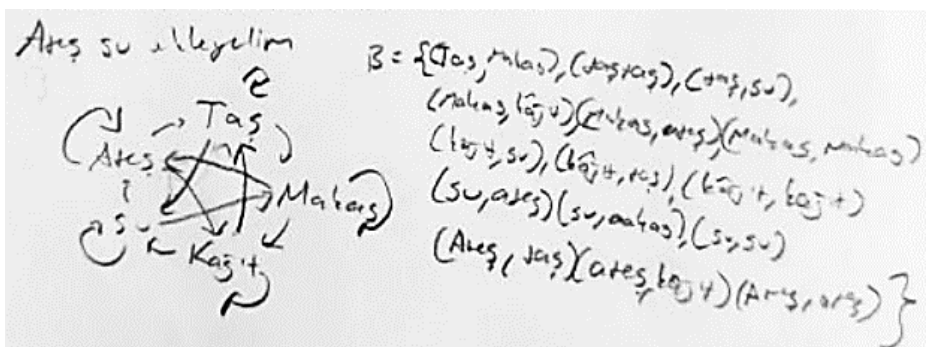 Ateş su ekleyelim
Taş
Ateş
Makas
Su
Kağıt
B = {(Taş, Makas), (taş, taş), (taş, su),
(Makas, kağıt)(Makas, ateş)(Makas, makas)
(kağıt, su), (kâğıt, taş), (kâğıt, kağıt)
(su, ateş)(su, makas), (su, su)
(Ateş, taş)(ateş, kağıt)(Ateş, ateş)}